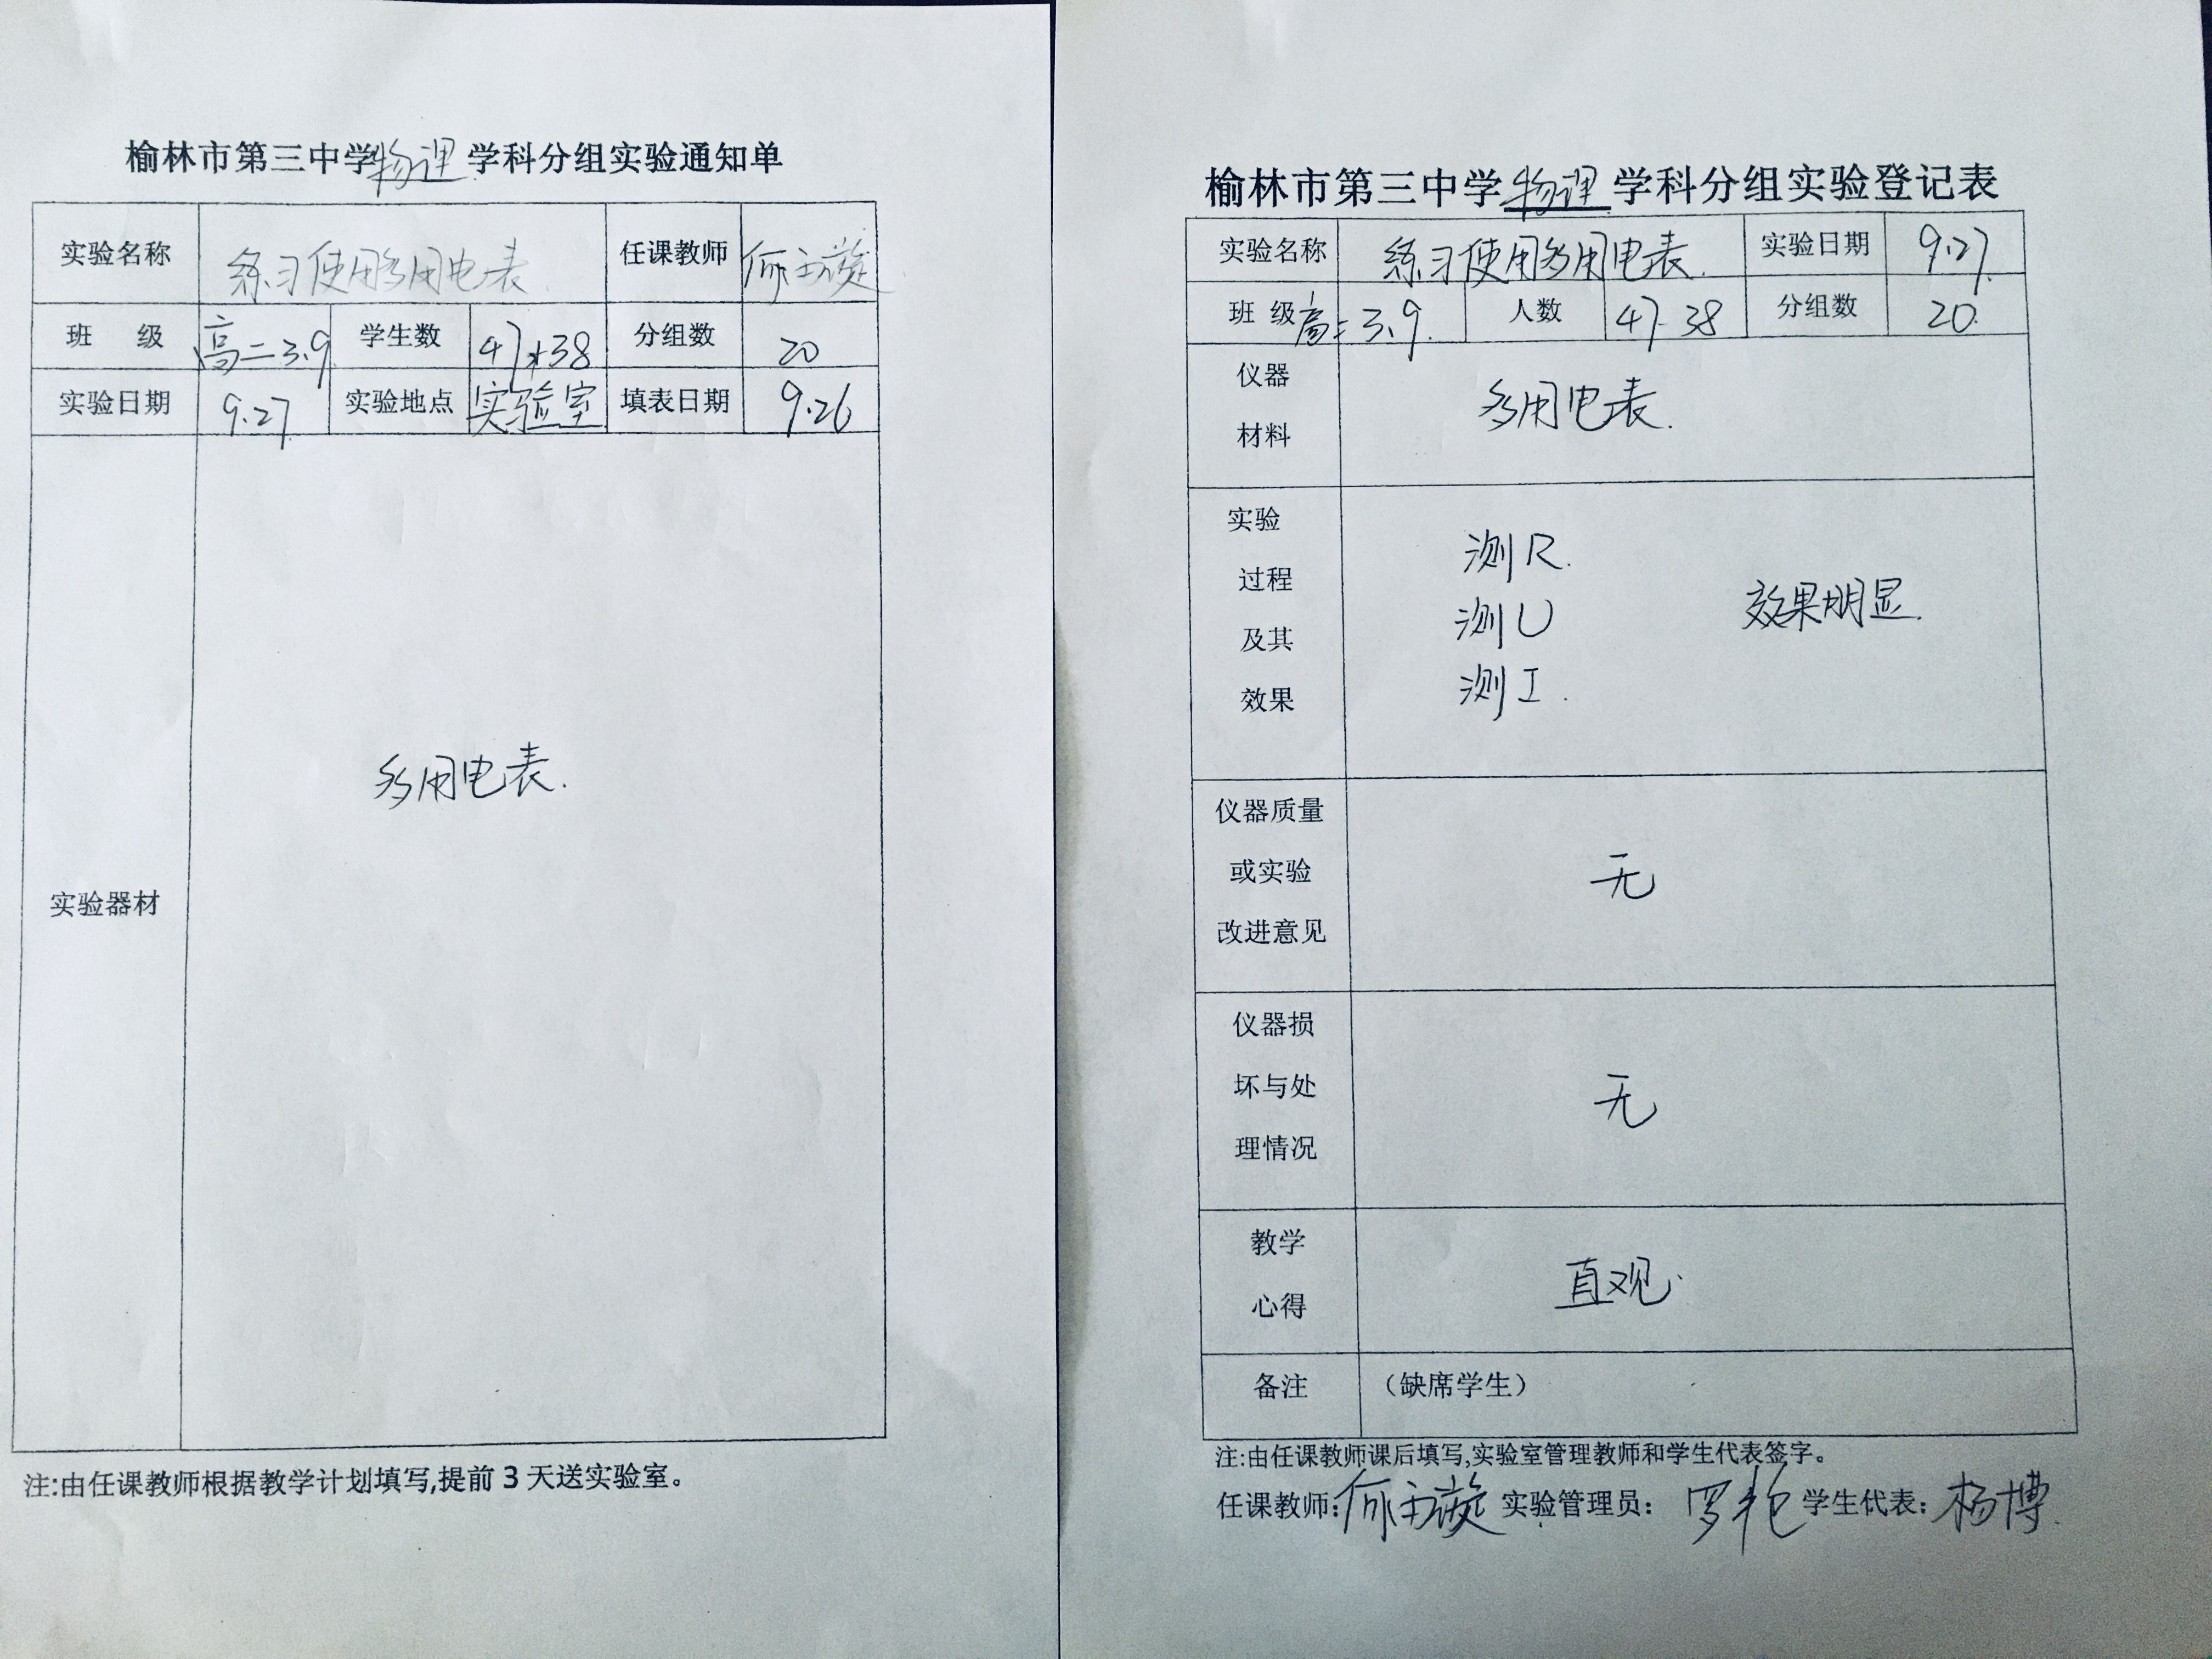 榆林市第三中学物理学科分组实验通知单
实验名称 练习使用多用电表 任课教师
班 级 高二3.9 学生数 47+38 分组数 20
实验日期 9.27 实验地点 实验室 填表日期 9.26
实验器材 多用电表.
注:由任课教师根据教学计划填写,提前3天送实验室。
榆林市第三中学物理学科分组实验登记表
实验名称 练习使用多用电表. 实验日期 9.27.
班 级 高二3.9. 人数 47 38 分组数 20.
仪器
材料
多用电表.
实验
过程
及其
效果
测R.
测U
测I.
效果明显.
仪器质量
或实验
改进意见
无
仪器损
坏与处
理情况
无
教学
心得
直观.
备注 （缺席学生）
注:由任课教师课后填写,实验室管理教师和学生代表签字。
任课教师: 实验管理员: 罗 学生代表: 杨博.